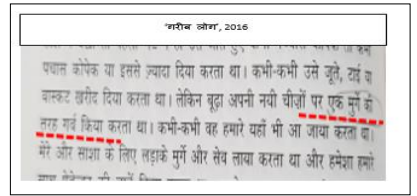 'गरीब लोग', 2016
पचास कोपेक या इससे ज़्यादा दिया करता था। कभी-कभी उसे जूते, टाई या
वास्कट ख़रीद दिया करता था। लेकिन बूढ़ा अपनी नयी चीज़ों पर एक मुर्गे की
तरह गर्व किया करता था। कभी-कभी वह हमारे यहाँ भी आ जाया करता था।
मेरे और साशा के लिए लड़ाके मुर्गे और सेव लाया करता था और हमेशा हमारे